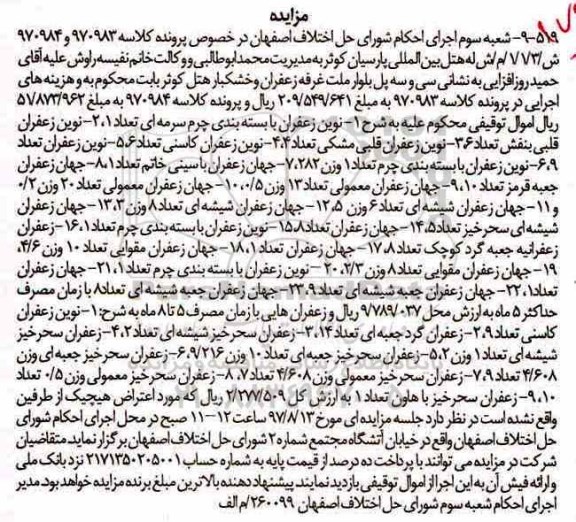 مزایده
۵۱۹-۹- شعبه سوم اجرای احکام شورای حل اختلاف اصفهان در خصوص پرونده کلاسه ۹۷۰۹۸۳ و ۹۷۰۹۸۴
ش/۱/۷۳/م/ش له هتل بین المللی پارسیان کوثر به مدیریت محمد ابوطالبی و وکالت خانم نفیسه راوش علیه آقای
حمید روزافزایی به نشانی سی و سه پل بلوار ملت غرفه زعفران وخشکبار هتل کوثر بابت محکوم به و هزینه های
اجرایی در پرونده کلاسه ۹۷۰۹۸۳ به مبلغ ۲۰۹/۵۴۹/۶۴۱ ریال و پرونده کلاسه ۹۷۰۹۸۴ به مبلغ ۵۷/۸۷۳/۹۶۲
ریال اموال توقیفی محکوم علیه به شرح ۱- نوین زعفران با بسته بندی چرم سرمه ای تعداد ۲،۱- نوین زعفران
قلبی بنفش تعداد ۳،۶- نوین زعفران قلبی مشکی تعداد ۴،۴- نوین زعفران کاسنی تعداد ۵،۶- نوین زعفران تعداد
۶،۹- نوین زعفران با بسته بندی چرم تعداد ۱ وزن ۷،۲۸۲- جهان زعفران با سینی خاتم تعداد ۸،۱- جهان زعفران
جعبه قرمز تعداد ۹،۱۰- جهان زعفران معمولی تعداد ۱۳ وزن ۱۰،۰/۵- جهان زعفران معمولی تعداد ۲۰ وزن ۰/۲
و ۱۱- جهان زعفران شیشه ای تعداد ۶ وزن ۱۲،۵- جهان زعفران شیشه ای تعداد ۸ وزن ۱۳،۳- جهان زعفران
شیشه ای سحرخیز تعداد ۱۴،۵- جهان زعفران تعداد ۱۵،۸- نوین زعفران با بسته بندی چرم تعداد ۱۶،۱- زعفران
زعفرانیه جعبه گرد کوچک تعداد ۱۷،۸- جهان زعفران تعداد ۱۸،۱- جهان زعفران مقوایی تعداد ۱۰ وزن ۴/۶،
۱۹- جهان زعفران مقوایی تعداد ۸ وزن ۲۰،۲/۳- نوین زعفران با بسته بندی چرم تعداد ۲۱،۱- جهان زعفران
تعداد ۲۲،۱- جهان زعفران جعبه شیشه ای تعداد ۲۳،۹- جهان زعفران جعبه شیشه ای تعداد ۸ با زمان مصرف
حداکثر ۵ ماه به ارزش محل ۹/۷۸۹/۰۳۷ ریال و زعفران هایی با زمان مصرف ۵ تا ۸ ماه به شرح: ۱- نوین زعفران
کاسنی تعداد ۲،۹- زعفران گرد جعبه ای تعداد ۳،۱۴- زعفران سحرخیز شیشه ای تعداد ۴،۲- زعفران سحرخیز
شیشه ای تعداد ۱ وزن ۵،۲- زعفران سحرخیز جعبه ای تعداد ۱۰ وزن ۶،۹/۲۱۶- زعفران سحرخیز جعبه ای وزن
۴/۶۰۸ تعداد ۷،۹- زعفران سحرخیز معمولی وزن ۴/۶۰۸ تعداد ۸،۷- زعفران سحرخیز معمولی وزن ۰/۵ تعداد
۹،۱۰- زعفران سحرخیز با هاون تعداد ۱ به ارزش کل ۲/۲۷۷/۵۰۹ ریال که مورد اعتراض هیچیک از طرفین
واقع نشده است در نظر دارد جلسه مزایده ای مورخ ۹۷/۸/۱۳ ساعت ۱۲-۱۱ صبح در محل اجرای احکام شورای
حل اختلاف اصفهان واقع در خیابان آتشگاه مجتمع شماره ۲ شورای حل اختلاف اصفهان برگزار نماید متقاضیان
شرکت در مزایده می توانند با پرداخت ده درصد از قیمت پایه به شماره حساب ۲۱۷۱۳۵۰۲۰۵۰۰۱ نزد بانک ملی
و ارائه فیش آن به این اجرا از اموال توقیفی بازدید نمایند پیشنهاد دهنده بالاترین مبلغ برنده مزایده خواهد بود. مدیر
اجرای احکام شعبه سوم شورای حل اختلاف اصفهان ۲۶۰۰۹۹/م الف